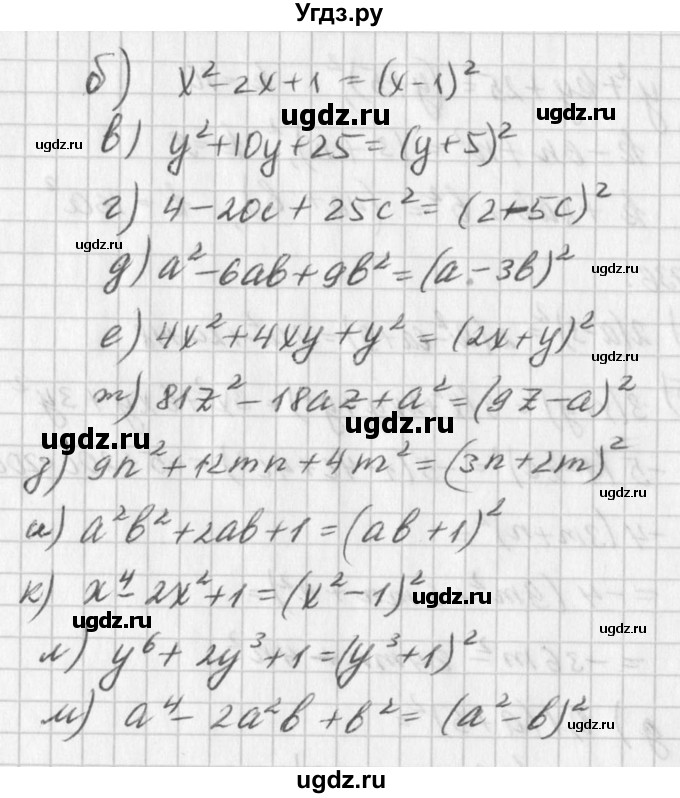 Угдз.ру
б) x² - 2x + 1 = (x - 1)²
ugdz.ru
ugdz.ru
ugdz.ru
в) y² + 10y + 25 = (y + 5)²
г) 4 - 20c + 25c² = (2 - 5c)²
ugdz.ru
ugdz.ru
д) a² - 6ab + 9b² = (a - 3b)²
е) 4x² + 4xy + y² = (2x + y)²
ugdz.ru
ж) 81z² - 18az + a² = (9z - a)²
ugdz.ru
ugdz.ru
з) 9n² + 12mn + 4m² = (3n + 2m)²
ugdz.ru
и) a²b² + 2ab + 1 = (ab + 1)²
к) x⁴ - 2x² + 1 = (x² - 1)²
ugdz.ru
ugdz.ru
ugdz.ru
л) y⁶ + 2y³ + 1 = (y³ + 1)²
м) a⁴ - 2a²b + b² = (a² - b)²
ugdz.ru
ugdz.ru
ugdz.ru